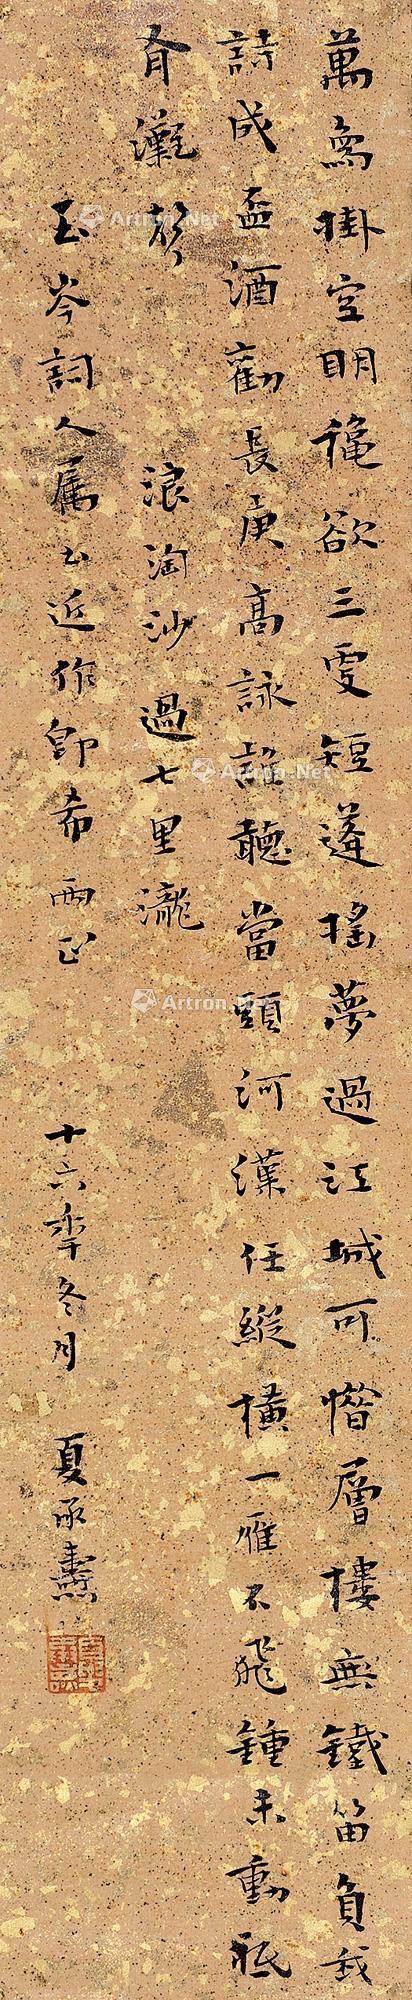 萬象掛空明穐欲三更短蓬搖夢過江城可惜層樓無鐵笛負我
詩成盃酒勸長庚高詠誰聽當頭河漢任縱橫一雁不飛鍾未動秖
有灘聲 浪淘沙過七里瀧
玉岑詞人属書近作即希兩正 十六年冬月 夏承燾
Artron.Net
Artron.Net
Artron.Net
Artron.Net
Artron.Net